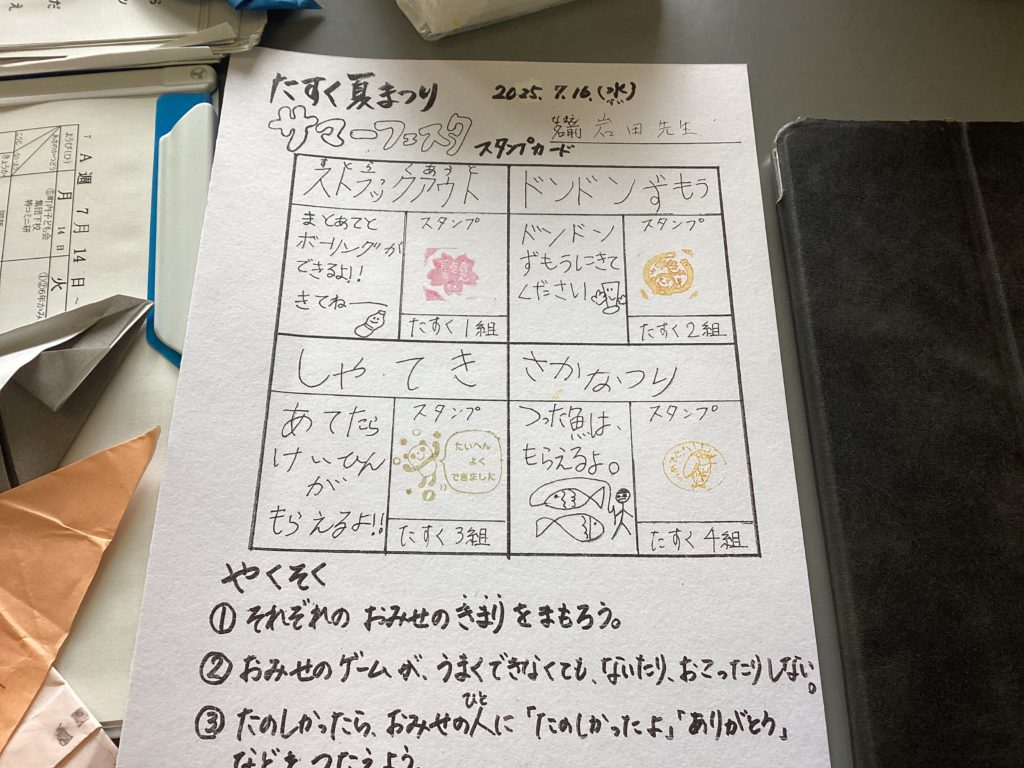 たすく夏まつり
2025.7.16.(水)
すい
サマーフェスタ
スタンプカード
なまえ
名前 岩田先生
すとらくあうと
ストラックアウト
まとあてと
ボーリングが
できるよ!!
きてねー
スタンプ
たすく1組
ドンドンずもう
ドンドン
ずもうにきて
ください
スタンプ
たすく2組
しゃてき
あてたら
けいひん
が
もらえるよ!!
スタンプ
たいへん
よく
できました
たすく3組
さかなつり
つった魚は、
もらえるよ。
スタンプ
たすく4組
やくそく
① それぞれの おみせのきまりをまもろう。
② おみせのゲームが、うまくできなくても、ないたり、おこったりしない。
ひと
③ たのしかったら、おみせの人に「たのしかったよ」「ありがとう」
などを つたえよう
A週 7月14日~
月
14日
火